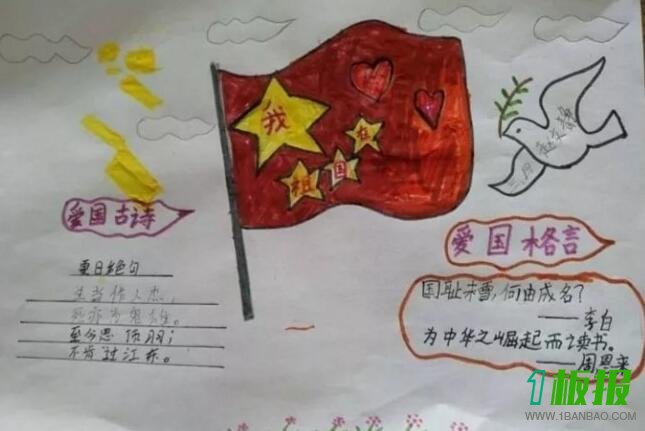 我 在
祖 国
爱国古诗
夏日绝句
生当作人杰，
死亦为鬼雄。
至今思项羽；
不肯过江东。
爱国格言
国耻未雪，何由成名？
——李白
为中华之崛起而读书。
——周恩来
板报
WWW.1BANBAO.COM